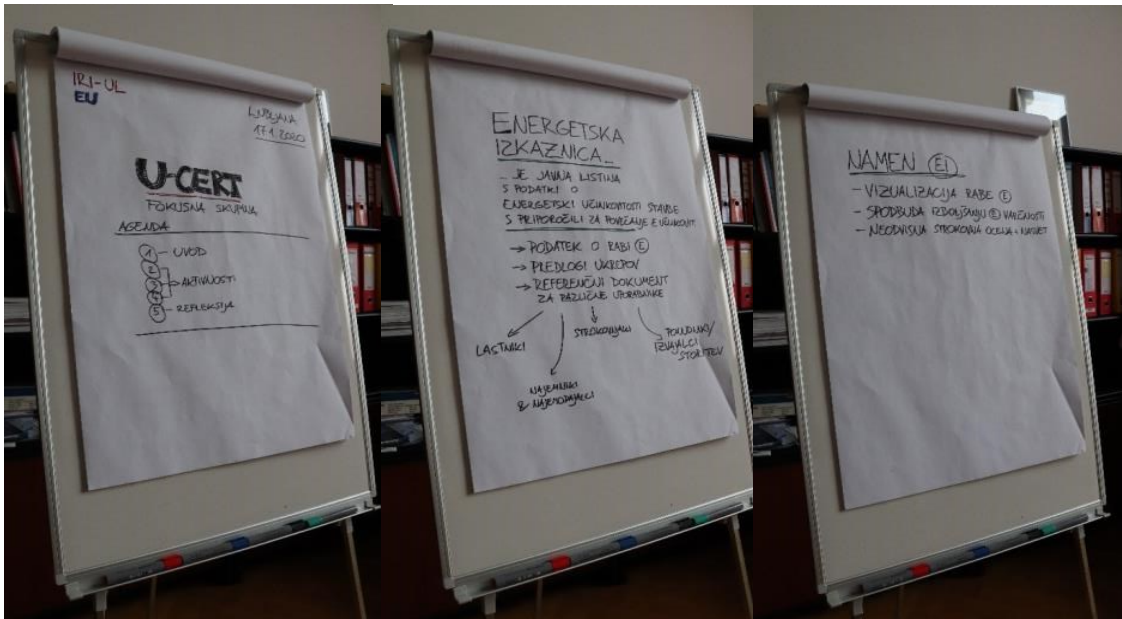 IRI-UL
EU
LJUBLJANA
17.1.2020
U-CERT
FOKUSNA SKUPINA
AGENDA
1 - UVOD
2
3 AKTIVNOSTI
4
5 - REFLEKSIJA
ENERGETSKA
IZKAZNICA...
... JE JAVNA LISTINA
S PODATKI O
ENERGETSKI UČINKOVITOSTI STAVBE
S PRIPOROČILI ZA POVEČANJE E UČINKOVIT
→ PODATEK O RABI E
→ PREDLOGI UKREPOV
→ REFERENČNI DOKUMENT
ZA RAZLIČNE UPORABNIKE
LASTNIKI
STROKOVNJAKI
PONUDNIKI/
IZVAJALCI
STORITEV
NAJEMNIKI
& NAJEMODAJALCI
NAMEN EI
- VIZUALIZACIJA RABE E
- SPODBUDA IZBOLJŠANJU E VARČNOSTI
- NEODVISNA STROKOVNA OCENA + NASVET